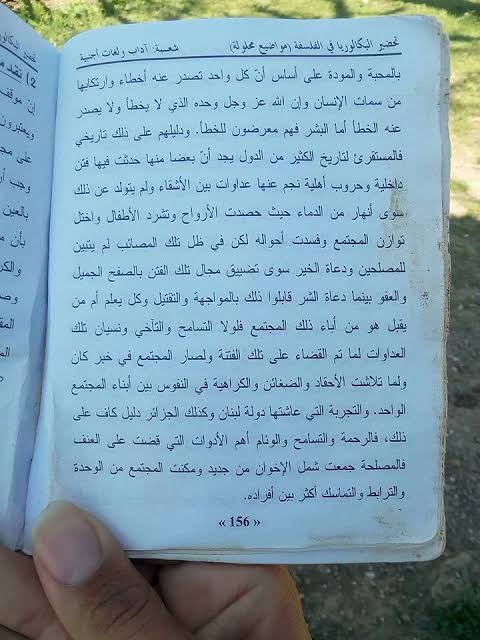 تحضير البكالوريا في الفلسفة (مواضيع محلولة) شعبة: آداب ولغات أجنبية
بالمحبة والمودة على أساس أنّ كل واحد تصدر عنه أخطاء وارتكابها
من سمات الإنسان وإن الله عز وجل وحده الذي لا يخطأ ولا يصدر
عنه الخطأ أما البشر فهم معرضون للخطأ. ودليلهم على ذلك تاريخي
فالمستقرئ لتاريخ الكثير من الدول يجد أنّ بعضا منها حدثت فيها فتن
داخلية وحروب أهلية نجم عنها عداوات بين الأشقاء ولم يتولد عن ذلك
سوى أنهار من الدماء حيث حصدت الأرواح وتشرد الأطفال واختل
توازن المجتمع وفسدت أحواله لكن في ظل تلك المصائب لم يتبين
للمصلحين ودعاة الخير سوى تضييق مجال تلك الفتن بالصفح الجميل
والعفو بينما دعاة الشر قابلوا ذلك بالمواجهة والتقتيل وكل يعلم أم من
يقبل هو من أباء ذلك المجتمع فلولا التسامح والتآخي ونسيان تلك
العداوات لما تم القضاء على تلك الفتنة ولصار المجتمع في خبر كان
ولما تلاشت الأحقاد والضغائن والكراهية في النفوس بين أبناء المجتمع
الواحد. والتجربة التي عاشتها دولة لبنان وكذلك الجزائر دليل كاف على
ذلك، فالرحمة والتسامح والوئام أهم الأدوات التي قضت على العنف
فالمصلحة جمعت شمل الإخوان من جديد ومكنت المجتمع من الوحدة
والترابط والتماسك أكثر بين أفراده.
« 156 »